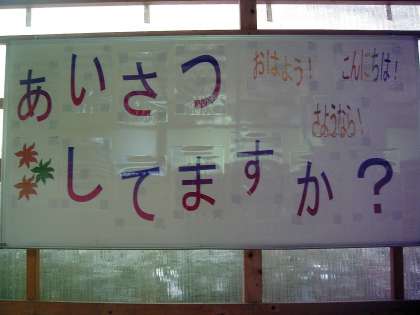 あいさつ
おはよう！
こんにちは！
さようなら！
してますか？